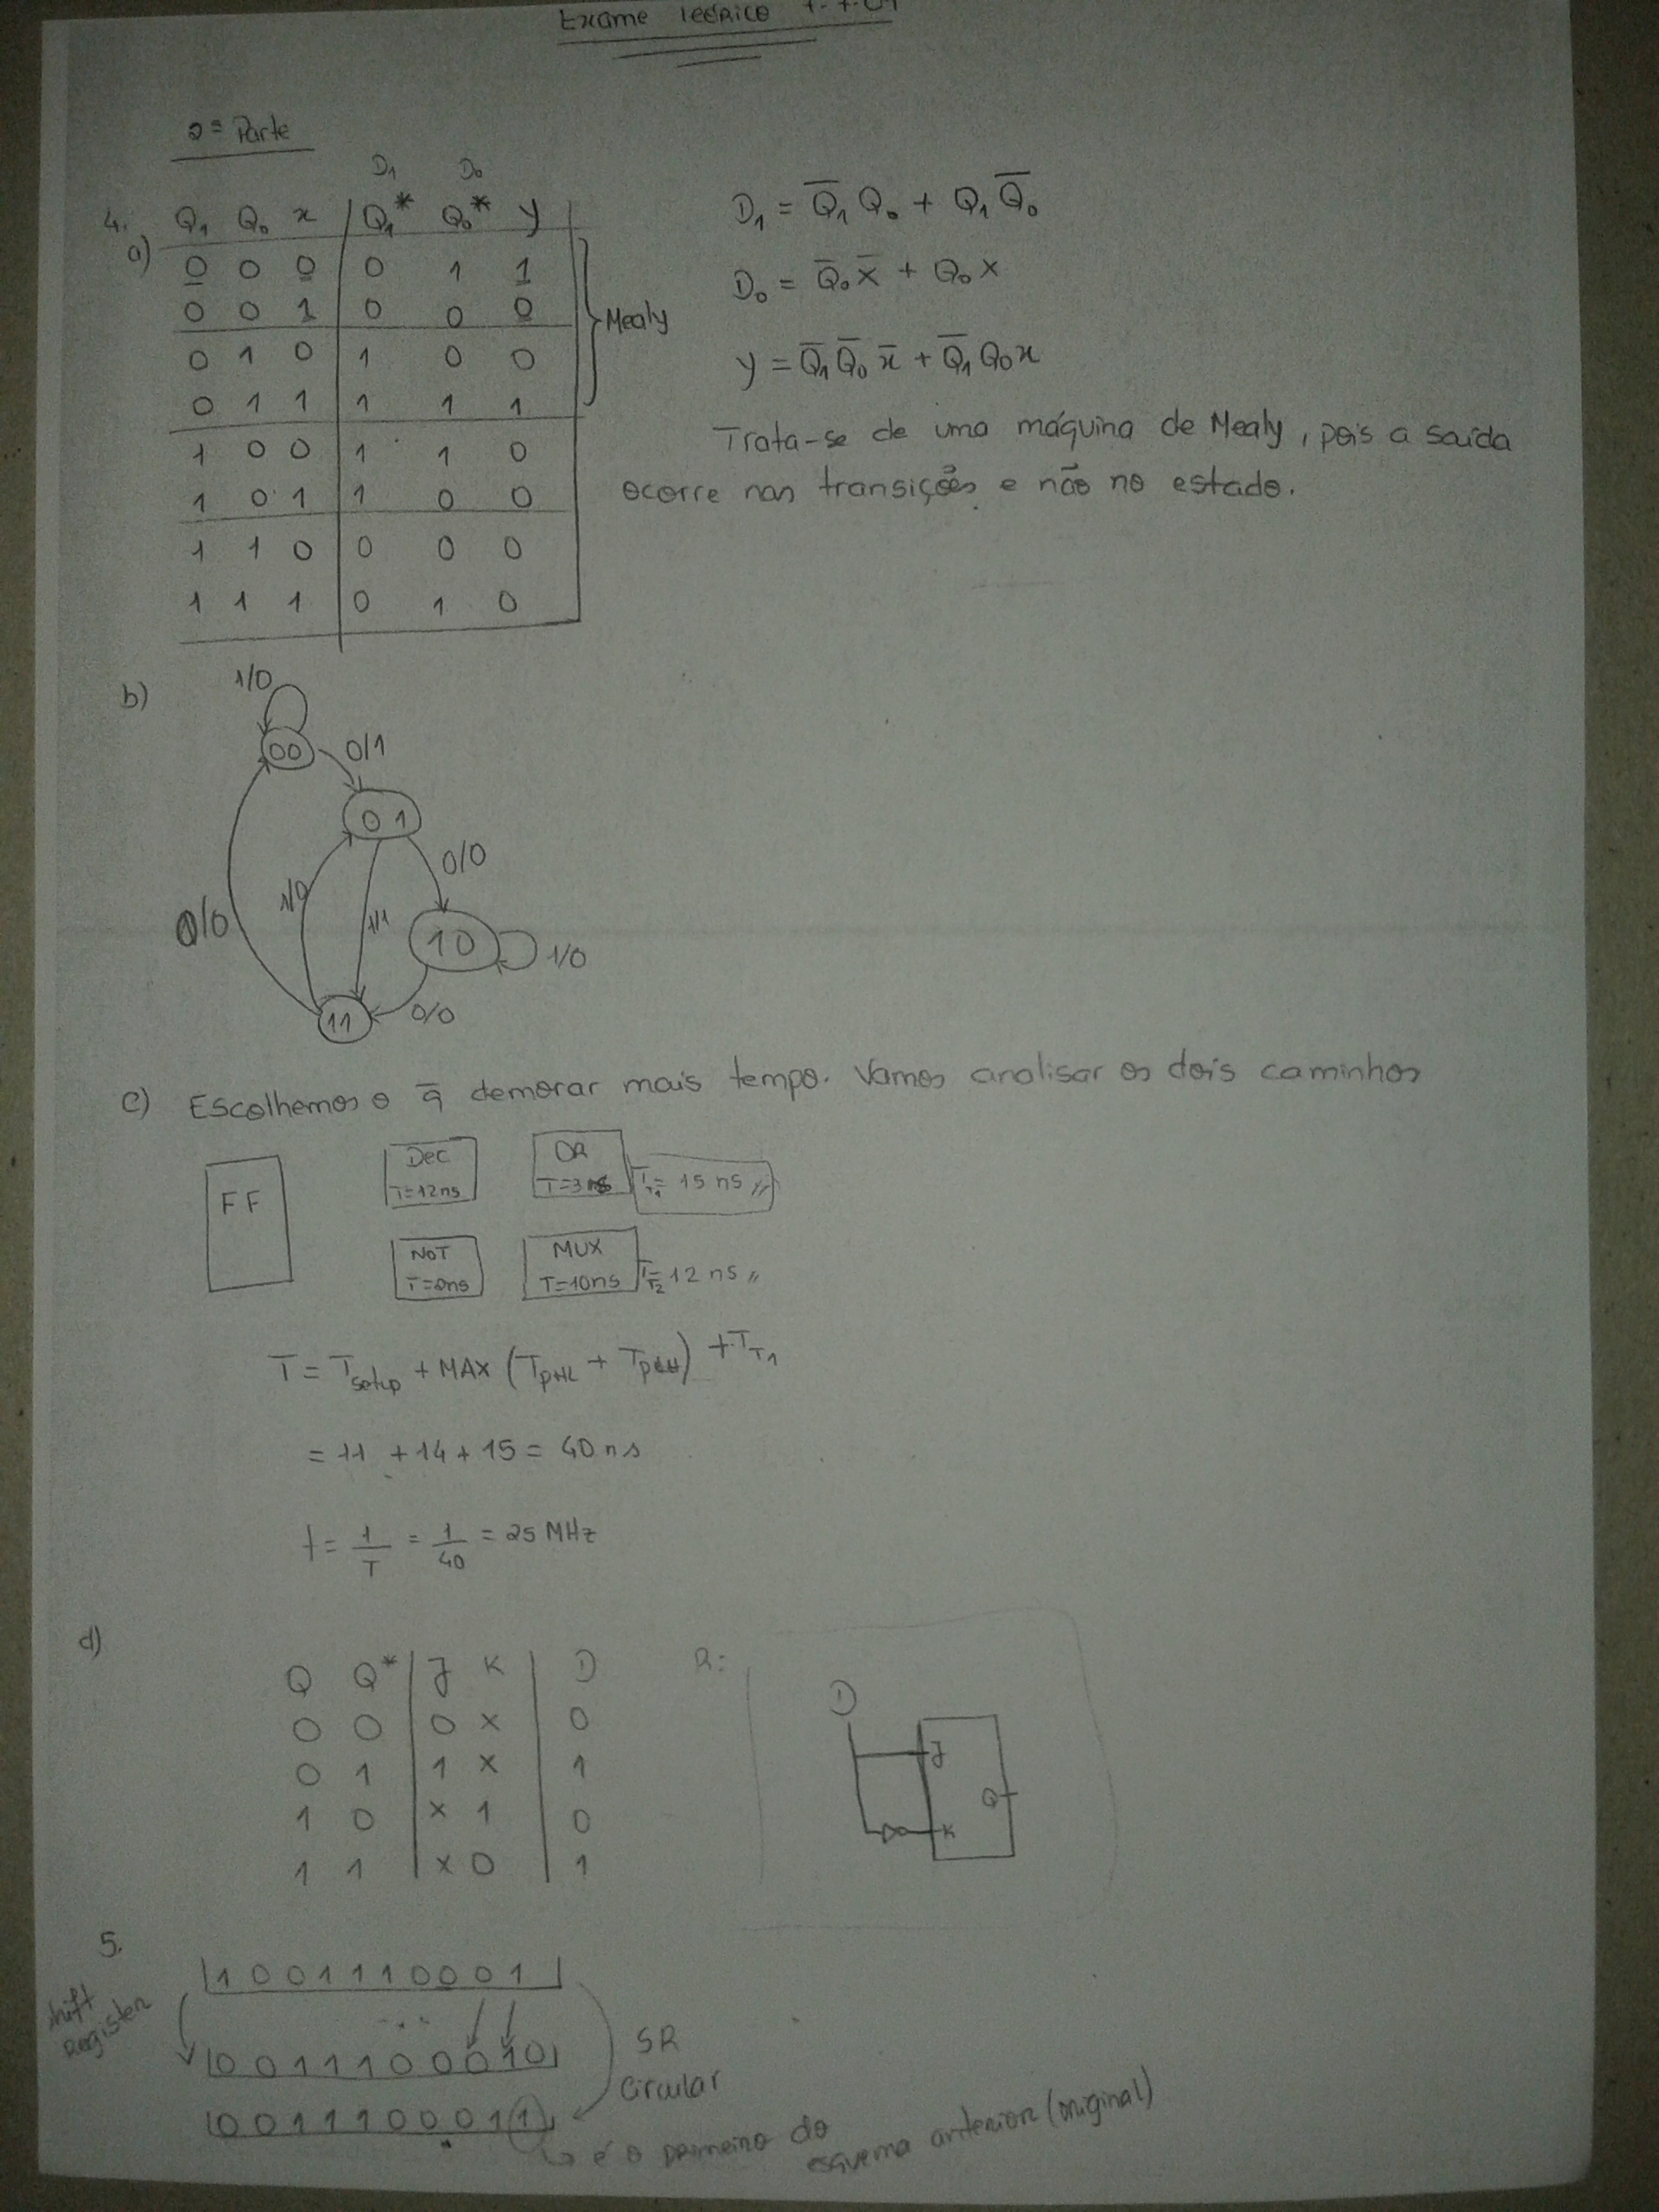 Exame Teórico
2ª Parte
D₁ D₀
4. Q₁ Q₀ x | Q₁* Q₀* y
a) 0 0 0 | 0 1 1
0 0 1 | 0 0 0
0 1 0 | 1 0 0
0 1 1 | 1 1 1
1 0 0 | 1 1 0
1 0 1 | 1 0 0
1 1 0 | 0 0 0
1 1 1 | 0 1 0
Mealy
D₁ = Q̅₁ Q₀ + Q₁ Q̅₀
D₀ = Q̅₀ x̅ + Q₀ x
y = Q̅₁ Q̅₀ x̅ + Q̅₁ Q₀ x
Trata-se de uma máquina de Mealy, pois a saída
ocorre nas transições e não no estado.
b)
1/0
00 0/1
01
0/0
0/0 1/0 1/1
10 1/0
11 0/0
c) Escolhemos o q̅ demorar mais tempo. Vamos analisar os dois caminhos
FF
DEC
T=12ns
OR
T=3ns
T_T1 = 15 ns //
NOT
T=2ns
MUX
T=10ns
T_T2 = 12 ns //
T = T_setup + MAX (T_PHL + T_PLH) + T_T1
= 11 + 14 + 15 = 40 ns
f = 1/T = 1/40 = 25 MHz
d)
Q Q* | J K | D
0 0 | 0 x | 0
0 1 | 1 x | 1
1 0 | x 1 | 0
1 1 | x 0 | 1
R:
D
J
Q
K
5.
1 0 0 1 1 1 0 0 0 1
shift
Register
0 0 1 1 1 0 0 0 1 0
SR
Circular
0 0 1 1 1 0 0 0 1 1
↳ é o primeiro do
esquema anterior (original)